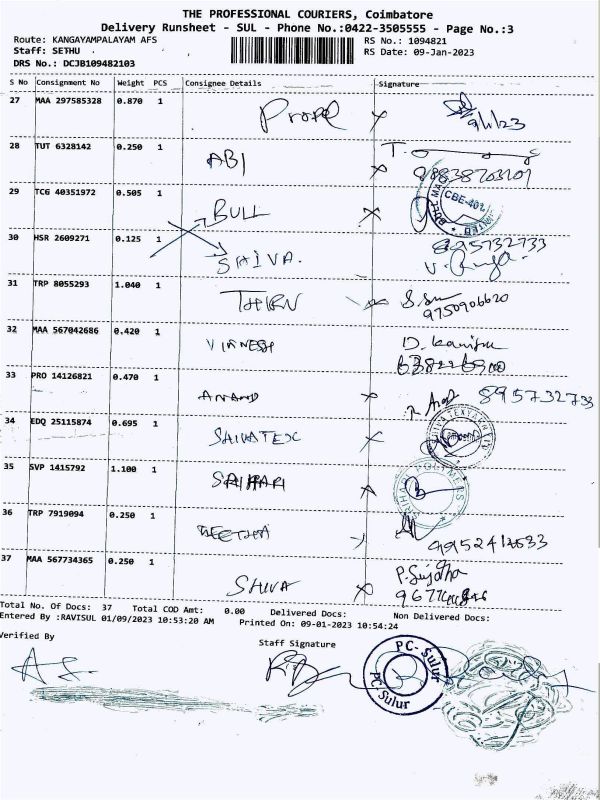 THE PROFESSIONAL COURIERS, Coimbatore
Delivery Runsheet - SUL - Phone No.:0422-3505555 - Page No.:3
Route: KANGAYAMPALAYAM AFS
RS No.: 1094821
Staff: SETHU
RS Date: 09-Jan-2023
DRS No.: DCJB109482103
S No Consignment No Weight PCS Consignee Details Signature
27 MAA 297585328 0.870 1 9/1/23
28 TUT 6328142 0.250 1 ABI
29 TCG 40351972 0.505 1 BULL CBE-401
30 HSR 2609271 0.125 1 SHIVA. 8895732733
31 TRP 8055293 1.040 1 9750906620
32 MAA 567042686 0.420 1 VIGNESH
33 PRO 14126821 0.470 1 ANAND 895732733
34 EDQ 25115874 0.695 1 SHIVATEX
35 SVP 1415792 1.100 1 SRIHARI SRIHARI POLYMERS
36 TRP 7919094 0.250 1 GEETHA
37 MAA 567734365 0.250 1 SHIVA P. Sujatha
Total No. Of Docs: 37 Total COD Amt: 0.00 Delivered Docs: Non Delivered Docs:
Entered By :RAVISUL 01/09/2023 10:53:20 AM Printed On: 09-01-2023 10:54:24
Verified By
Staff Signature
PC- Sulur
PC Sulur